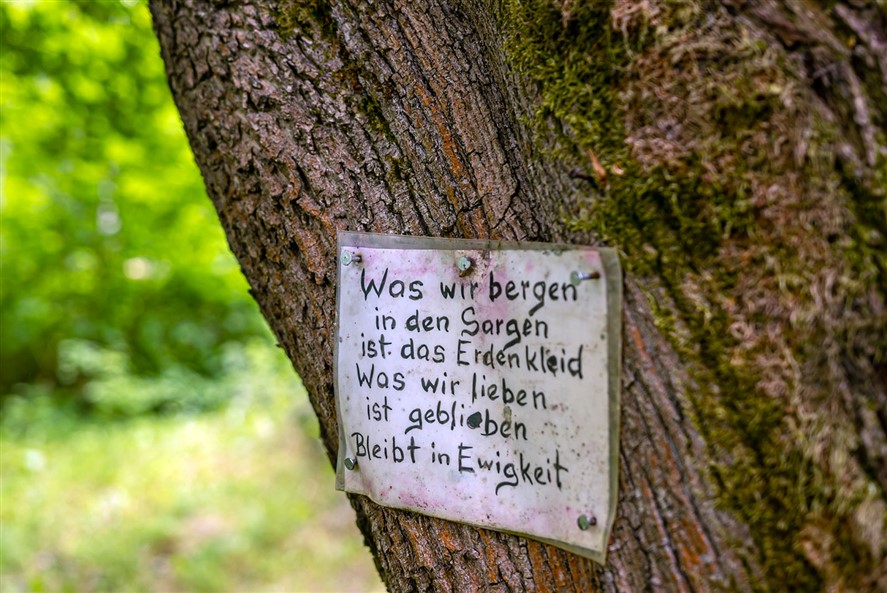 Was wir bergen
in den Särgen
ist das Erdenkleid
Was wir lieben
ist geblieben
Bleibt in Ewigkeit